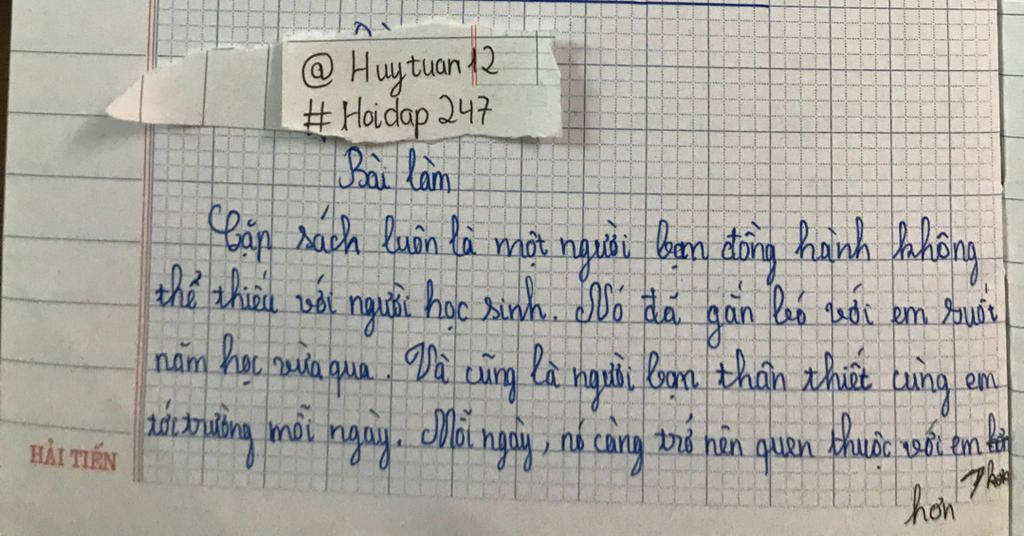 @ Huytuan12
# Hoidap 247
Bài làm
Cặp sách luôn là một người bạn đồng hành không
thể thiếu với người học sinh. Nó đã gắn bó với em suốt
năm học vừa qua. Và cũng là người bạn thân thiết cùng em
tới trường mỗi ngày. Mỗi ngày, nó càng trở nên quen thuộc với em
HẢI TIẾN
hơn
hơn